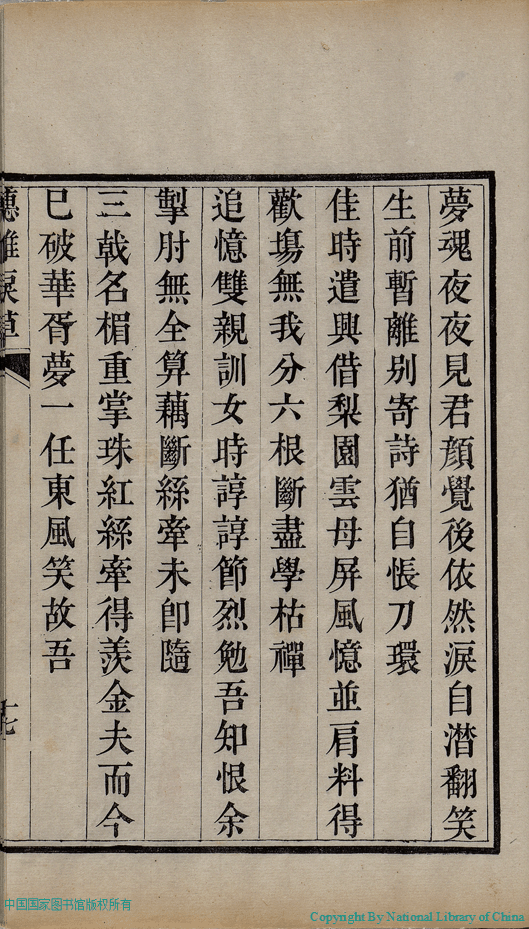 夢魂夜夜見君顏覺後依然淚自潸翻笑
生前暫離别寄詩猶自悵刀環
佳時遣興借梨園雲母屏風憶並肩料得
歡塲無我分六根斷盡學枯禪
追憶雙親訓女時諄諄節烈勉吾知恨余
掣肘無全算藕斷絲牽未卽隨
三戟名楣重掌珠紅絲牽得羨金夫而今
已破華胥夢一任東風笑故吾
十七
中国国家图书馆版权所有
Copyright By National Library of China